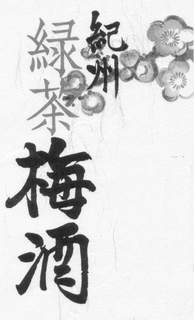 紀州
緑茶
梅酒